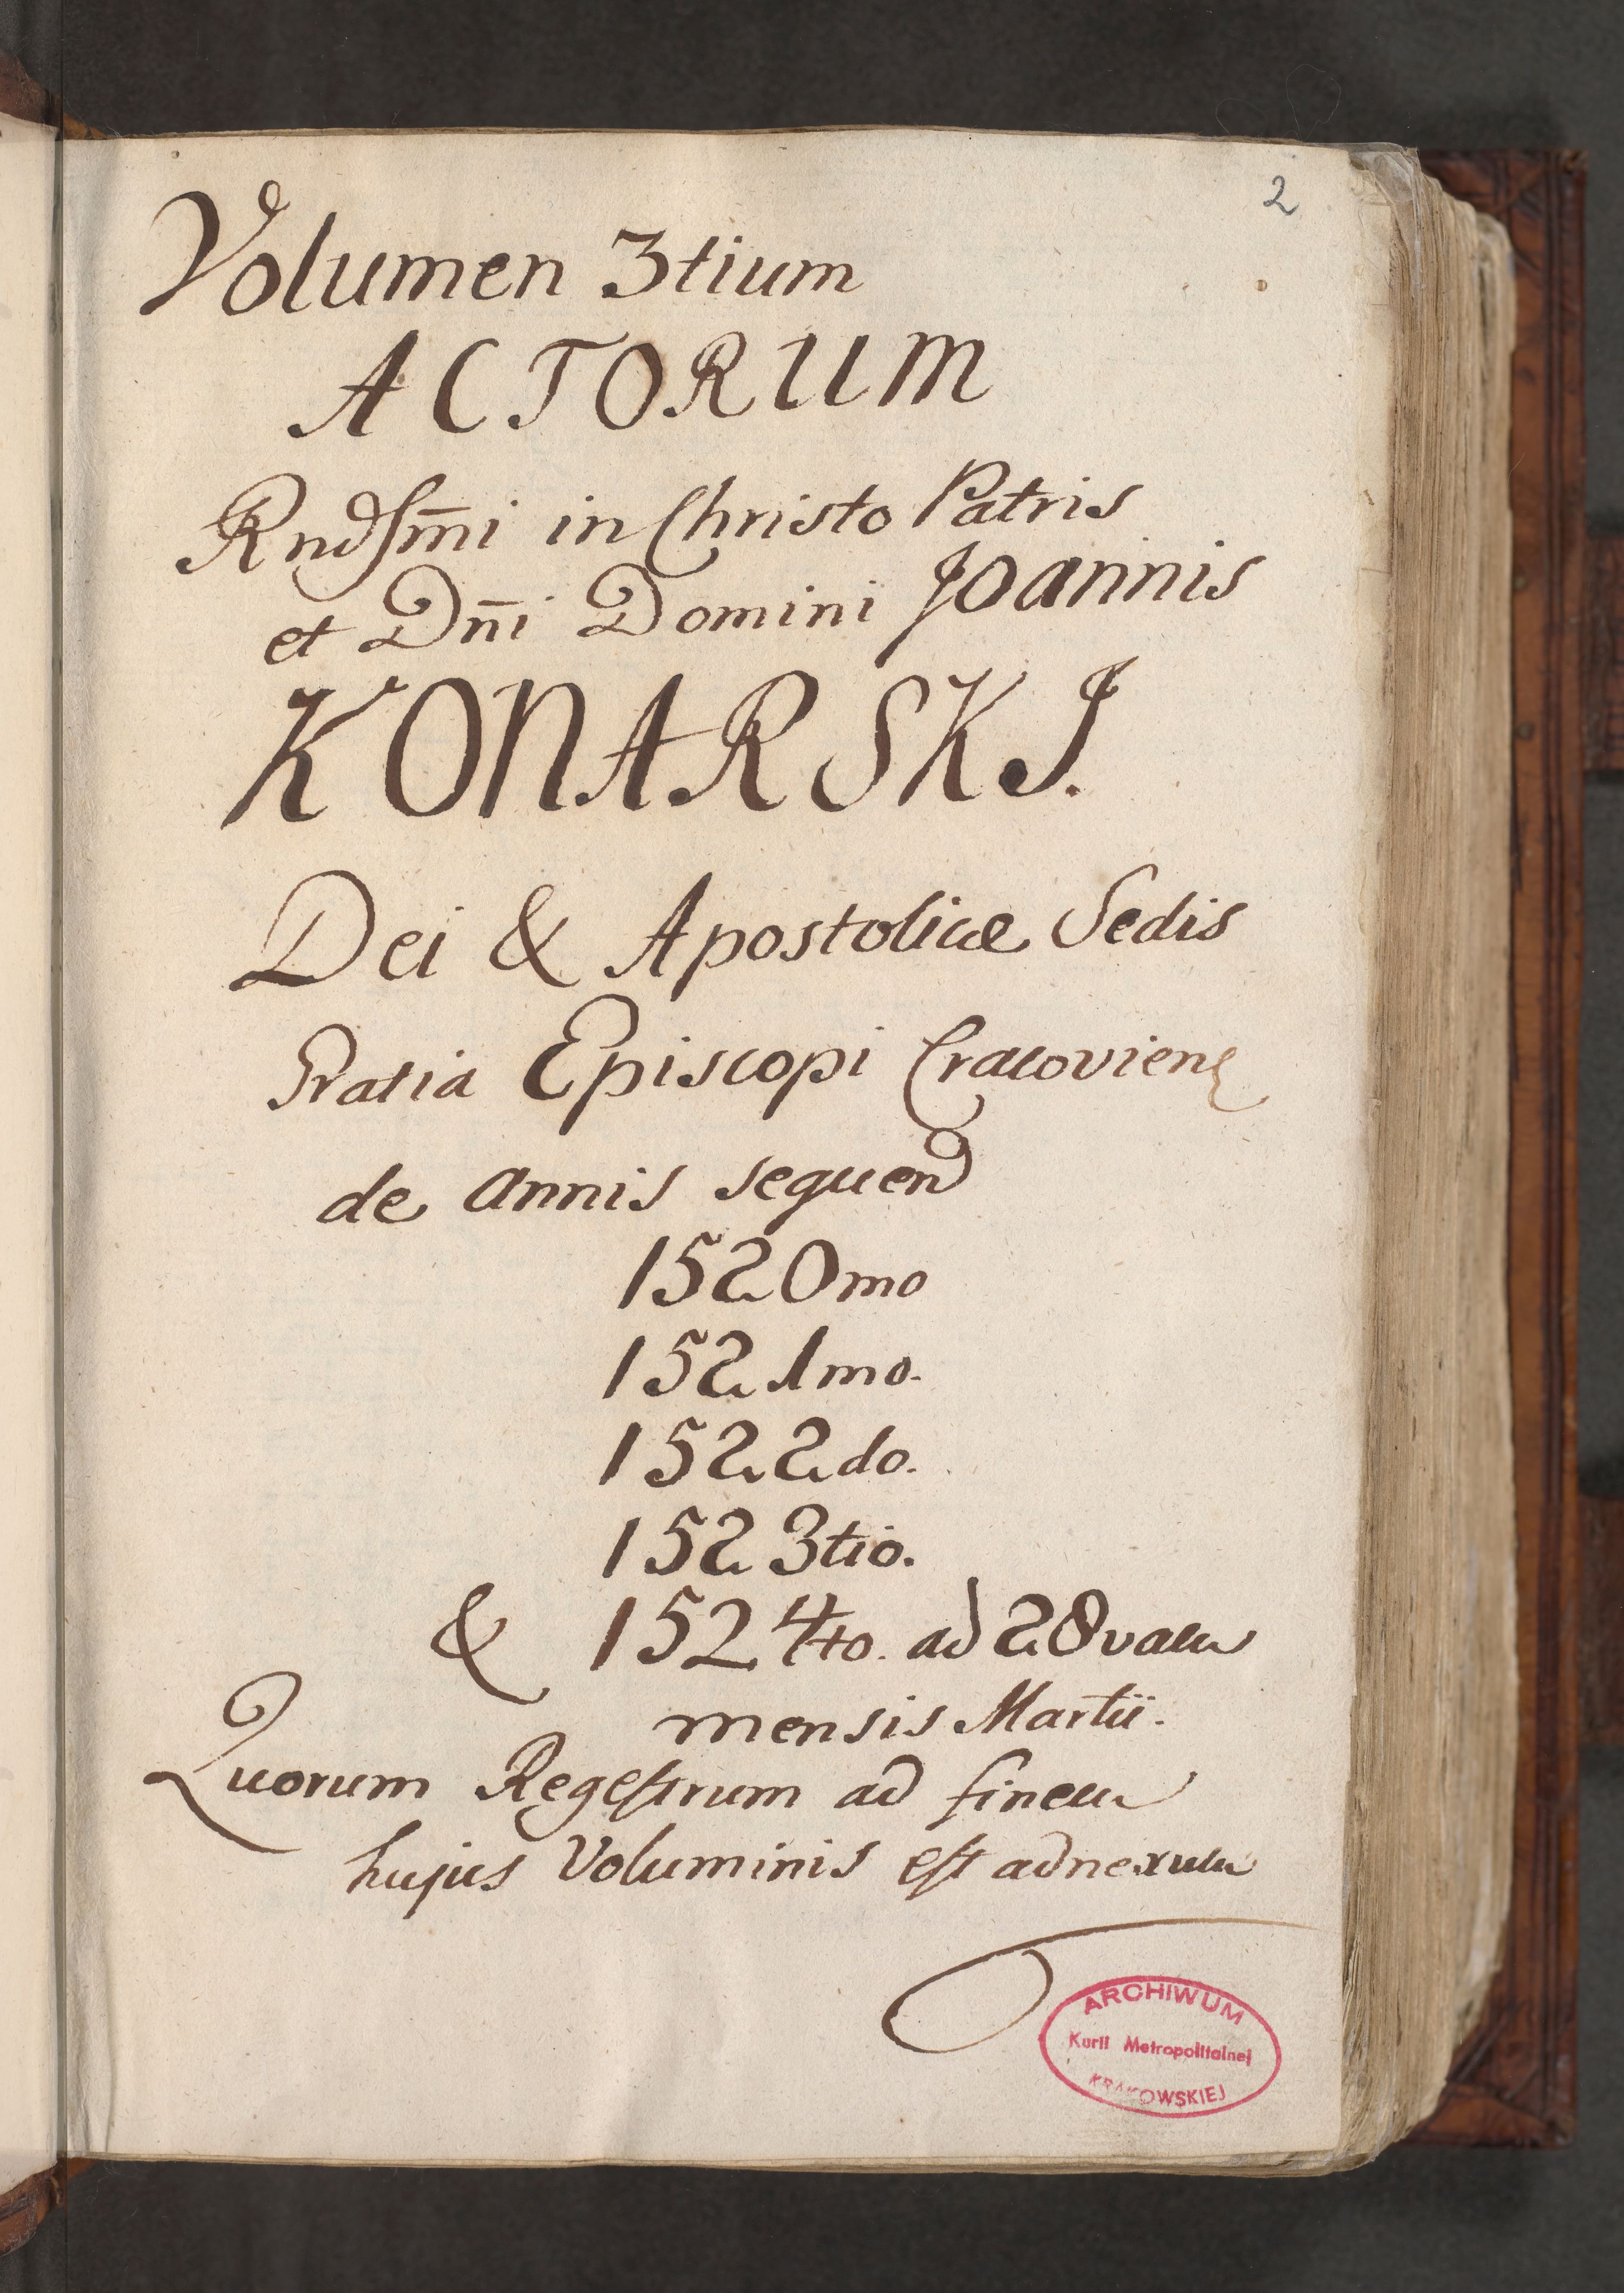 2
Volumen 3tium
ACTORUM
Rndſm̄i in Christo Patris
et Dn̄i Domini Joannis
KONARSKJ.
Dei & Apostolicæ Sedis
Gratia Episcopi Cracovien
de annis sequend
1520mo
1521mo.
1522do.
1523tio.
& 1524to. ad 28vam
mensis Martii.
Quorum Regeſtrum ad finem
hujus Voluminis eſt adnexum
ARCHIWUM
Kurii Metropolitalnej
KRAKOWSKIEJ